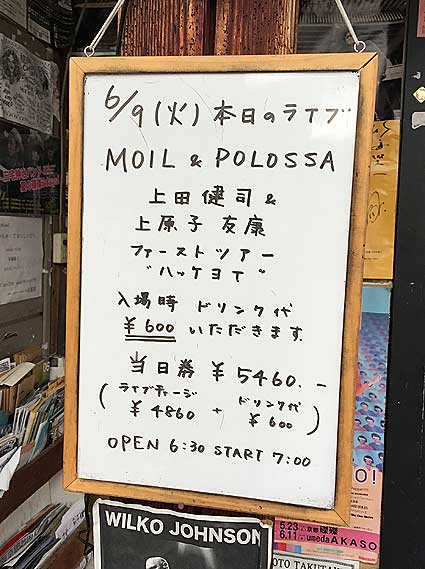 6/9(火)本日のライブ
MOIL & POLOSSA
上田健司&
上原子友康
ファーストツアー
"ハッケヨイ"
入場時 ドリンク代
¥600 いただきます.
当日券 ¥5460.-
(ライブチャージ ¥4860 + ドリンク代 ¥600)
OPEN 6:30 START 7:00
WILKO JOHNSON
O!
5.23
6.11 umeda AKASO
OTO TAKUTA